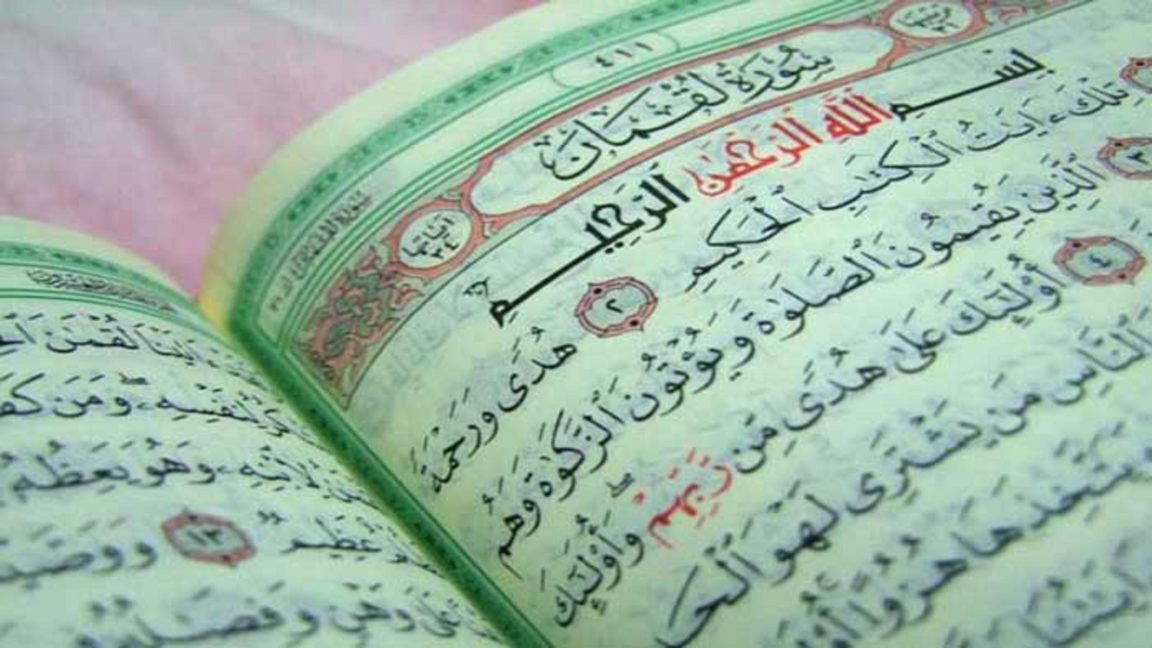 ٤١١
سُورَةُ لُقْمَانَ
آياتها ٣٤
بِسْمِ ٱللَّهِ ٱلرَّحْمَٰنِ ٱلرَّحِيمِ
تِلْكَ ءَايَٰتُ ٱلْكِتَٰبِ ٱلْحَكِيمِ ٢ هُدًى وَرَحْمَةً
٣ ٱلَّذِينَ يُقِيمُونَ ٱلصَّلَوٰةَ وَيُؤْتُونَ ٱلزَّكَوٰةَ وَهُم
٤ أُو۟لَٰٓئِكَ عَلَىٰ هُدًى مِّن رَّبِّهِمْ ۖ وَأُو۟لَٰٓئِكَ
ٱلنَّاسِ مَن يَشْتَرِى لَهْوَ ٱلْحَ
يَتَّخِذَهَا هُزُوًا
لُقْمَٰنَ
لِنَفْسِهِۦ ۖ وَمَن كَفَ
لِٱبْنِهِۦ وَهُوَ يَعِظُهُۥ
عَظِيمٌ ١٣ وَوَصَّيْ
عَلَىٰ وَهْنٍ وَفِصَٰلُهُۥ